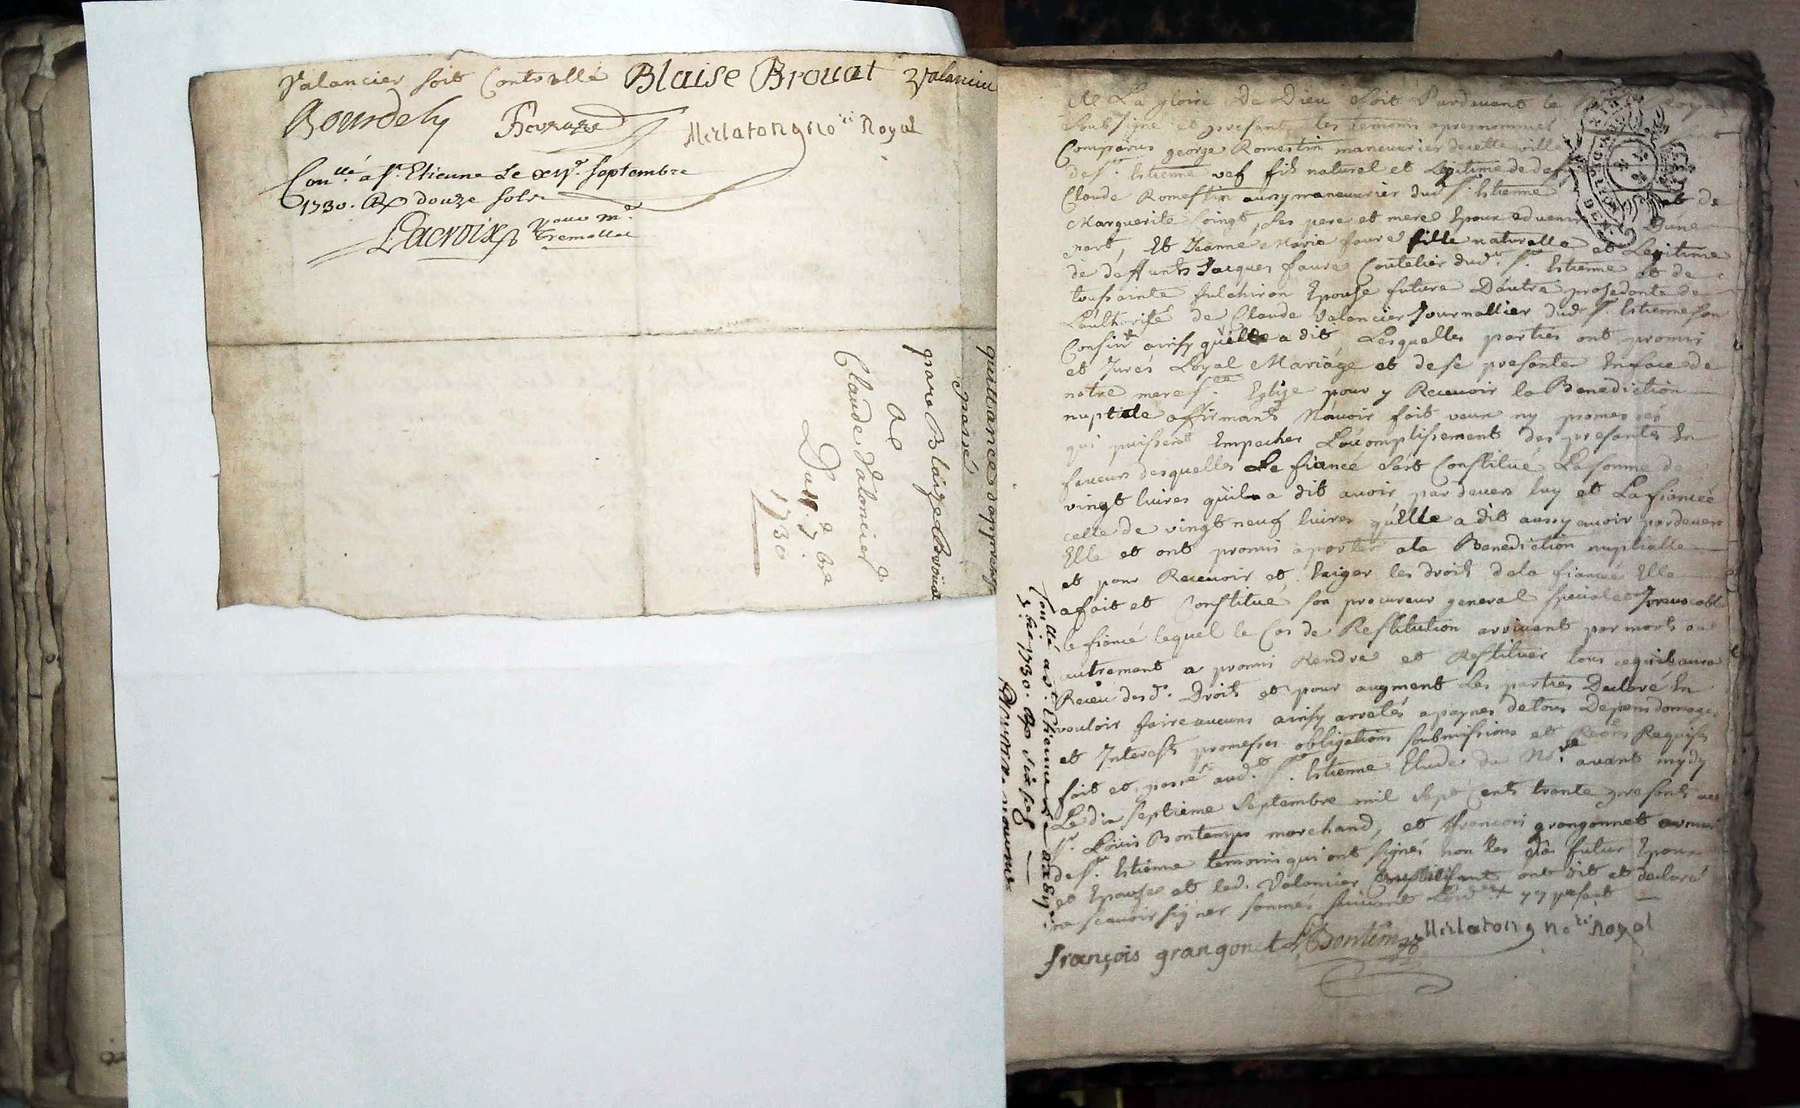 Valancier soit Controllé Blaise Brouat Valancier
Bourdely
Mirlatong no.re Royal
Con.llé a S.t Etienne Le septembre
1730. R douze sols
Lacroix pour m.r
Tremollet
quittance d'appreng
passé
par Blaize Brouat
a
Claude Valancier
Du 7.bre
1730
A La gloire De Dieu soit Pardevant le Royal
Soubsigné et presants les temoins apres nommés
Comparus george Romestin maneuvrier de cette ville
de S.t Estienne fils naturel et Legitime de def
Claude Romestin aussy maneuvrier dud S.t Estienne et de
Marguerite Soingt, ses pere et mere Epoux advenir D'une
part, Et Jeanne Marie faure fille naturelle et Legitime
de deffunts Jacques faure Coutelier dud.t S.t Estienne et de
toussainte fulchiron Epouse future D'autre, prosedante de
L'authorité de Claude Valancier Journallier dud S.t Estienne son
ainsy qu'elle a dit Lesquelles parties ont promis
et Jurés Loyal Mariage et de se presanter En face de
notre mere S.te Eglize pour y Recevoir la Benediction
nuptiale affirmants N'avoir fait veux ny promesses
qui puissent Empecher L'acomplissement des presantes En
faveurs desquelles Le fiancé s'est Constitué La somme de
vingt livres qu'il a dit avoir par devers luy et La fiancée
celle de vingt neuf livres qu'Elle a dit aussy avoir par devers
Elle et ont promis aporter a la Benediction nuptialle
et pour Recevoir et Exiger les droits de la fiancée Elle
a fait et Constitué son procureur general special et Irrevocable
le fiancé lequel le Cas de Restitution arrivant par mort ou
autrement a promis Rendre et Restituer tous ce qu'il aura
Receu desd. Droits et pour augment Les parties Declaré En
vouloir faire aucuns ainsy arretés a paynes de tous Depens domages
et Interests promesses obligations soubmissions et Requises
fait et passé aud.t S.t Estienne Etude du No.re avant mydy
Le dix septieme Septembre mil sept cents trante presants
s.r Louis Bontemps marchand, et francois grangonnet
de S.t Estienne temoins qui ont signés non les futur Epoux
et Epouse et led. Valancier ont dit et declaré
ne scavoir signer sommés suivant
François grangonet LBontemps Mirlatong no.re Royal
Con.llé a S.t Etienne
7.bre 1730. R six sols